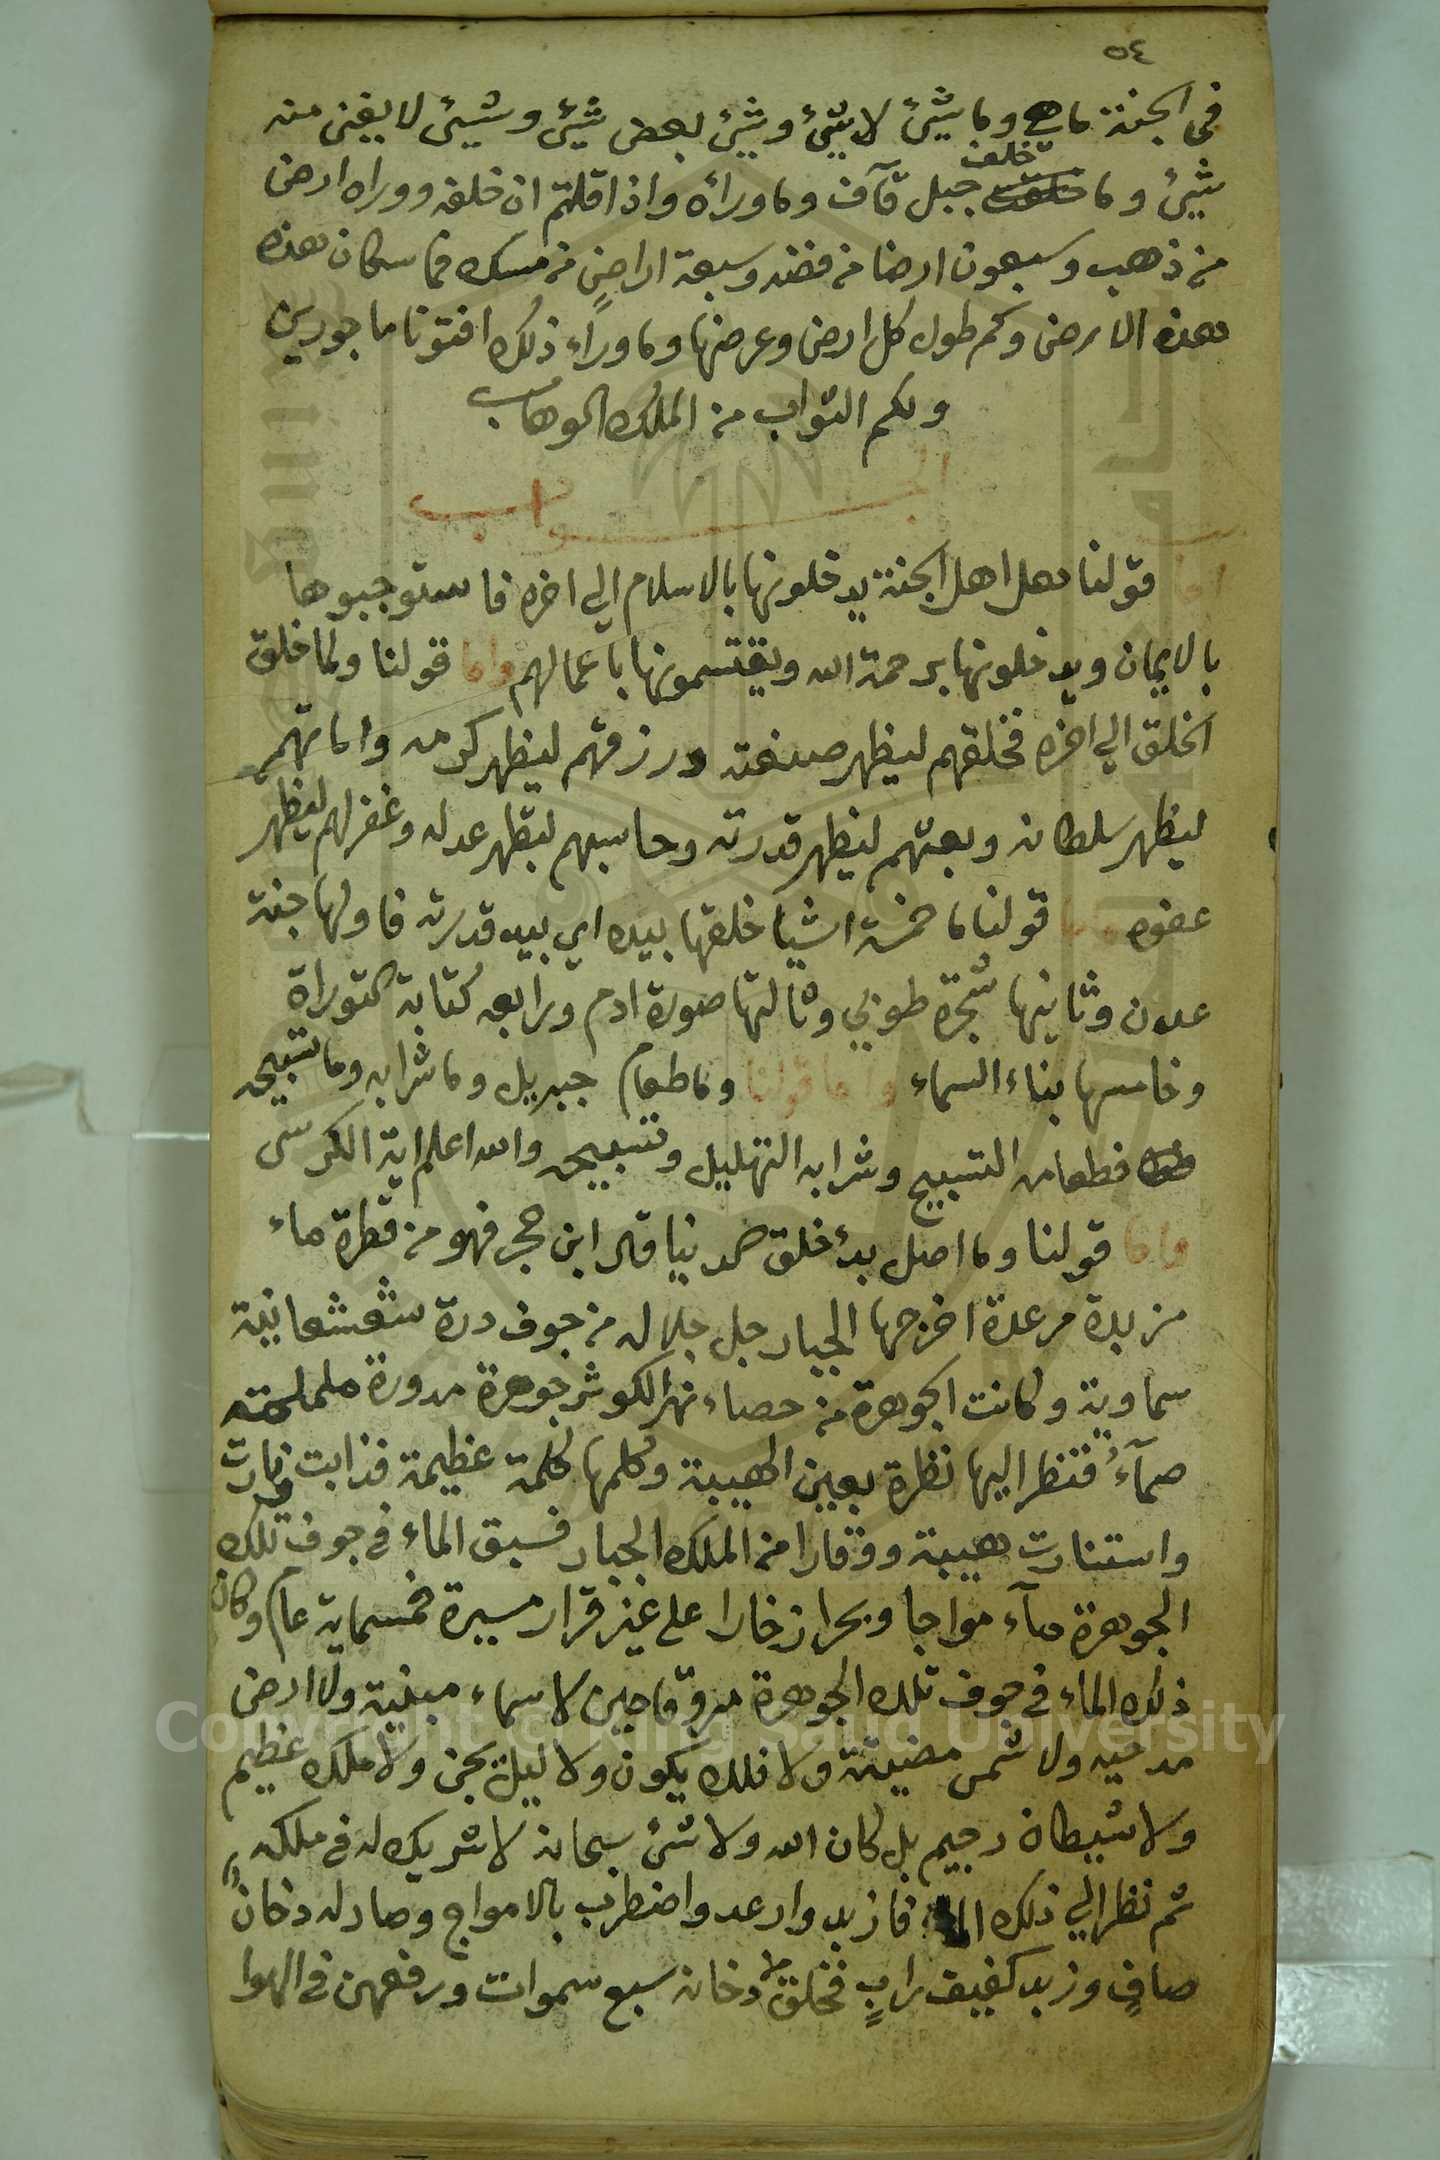 ٥٤
في الجنة ما هي وما شيئ لا شيئ وشيئ بعض شيئ وشيئ لا يغني منه
شيئ وما خلف جبل قآف وما ورائه واذا قلتم ان خلفه ووراه ارض
من ذهب وسبعون ارضا من فضه وسبعة اراضٍ من مسك فما سكان هذه
هذه الارض وكم طول كل ارض وعرضها وما وراء ذلك افتونا ماجورين
ولكم الثواب من الملك الوهاب
الجواب
اما قولنا هل اهل الجنة يدخلونها بالاسلام الي اخره فاستوجبوها
بالايمان ويدخلونها برحمة الله ويقتسمونها باعمالهم واما قولنا ولما خلق
الخلق الي اخره فخلقهم ليظهر صنعته ورزقهم ليظهر كرمه واماتهم
ليظهر سلطانه وبعثهم ليظهر قدرته وحاسبهم ليظهر عدله وغفر لهم ليظهر
عفوه واما قولنا ما خمسة اشيا خلقها بيده اي بيد قدرته فاولها جنة
عدن وثانيها شجرة طوبي وثالثها صورة ادم ورابعه كتابة التوراة
وخامسها بناء السماء واما قولنا وما طعام جبريل وما شرابه وما تسبيحه
فطعامه التسبيح وشرابه التهليل وتسبيحه والله اعلم اية الكرسى
واما قولنا وما اصل بدء خلق الدنيا قال ابن حجر فهو من قطرة ماء
مزبدة مرعدة اخرجها الجبار جل جلاله من جوف درة شعشعانية
سماوية وكانت الجوهرة من حصاء نهر الكوثر جوهرة مدورة ململمة
صمآء فنظر اليها نظرة بعين الهيبة وكلمها كلمة عظيمة فذابت وفارت
واستنارت هيبة ووقارا من الملك الجبار فسبق الماء في جوف تلك
الجوهرة مآء مواجا وبحرا زخارا على غير قرار مسيرة خمسماية عام وكان
ذلك الماء في جوف تلك الجوهرة مروقا حين لا سماء مبنية ولا ارض
مدحيه ولا شمس مضيئة ولا فلك يكون ولا ليل يجن ولا ملك عظيم
ولا شيطان رجيم بل كان الله ولا شئ سبحانه لا شريك له في ملكه
ثم نظر الي ذلك الماء فازبد وارعد واضطرب بالامواج وصار له دخانٌ
صافٍ وزبد كفيف رابٍ فخلق من دخانه سبع سموات ورفعهن في الهوا
Copyright © King Saud University